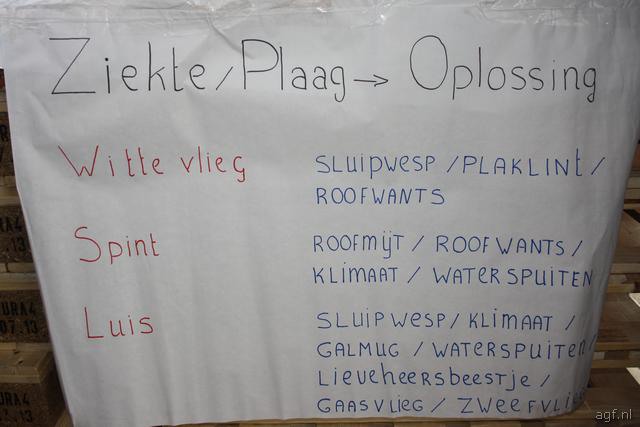 Ziekte/Plaag → Oplossing
Witte vlieg
SLUIPWESP / PLAKLINT /
ROOFWANTS
Spint
ROOFMIJT / ROOFWANTS /
KLIMAAT / WATERSPUITEN
Luis
SLUIPWESP / KLIMAAT /
GALMUG / WATERSPUITEN /
LIEVEHEERSBEESTJE /
GAASVLIEG / ZWEEFVLIEG
URA4
07.13
URA4
agf.nl